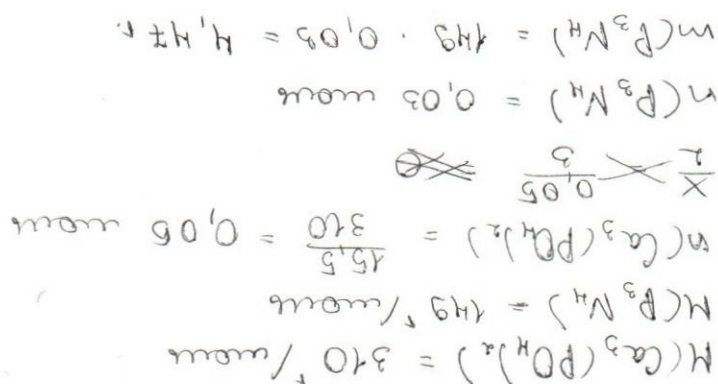 M(Ca₃(PO₄)₂) = 310 г/моль
M(P₃N₄) = 149 г/моль
n(Ca₃(PO₄)₂) = 15,5/310 = 0,05 моль
x/2 0,05/3
n(P₃N₄) = 0,03 моль
m(P₃N₄) = 149 · 0,03 = 4,47 г.